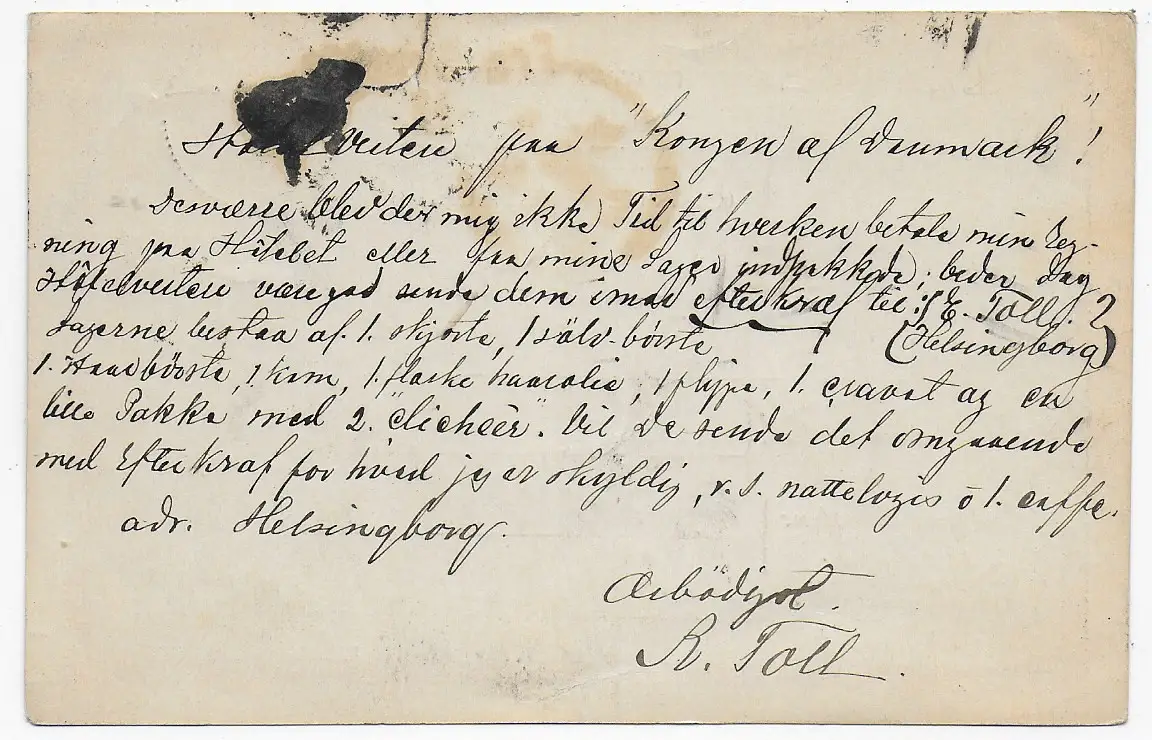 paa "Kongen af Danmark"!
Desværre blev der mig ikke Tid til hverken betale min Reg-
ning paa Hôtelet eller faa mine Sager indpakkade; beder dag
Hôtelverten være god sende dem imod efterkraf til: Toll.
Sagerne bestaa af. 1. skjorte, 1 sälv-börste (Helsingborg)
1. Haarbörste, 1. kam, 1. flaske haarolie, 1 flippe, 1. cravat og en
lille Pakke med 2. "clichéer". Vil De sende det omgaaende
med Efterkraf for hvad jeg er skyldig, v. s. nattelogis o 1. caffe.
adr. Helsingborg.
Ærbödigst.
R. Toll.